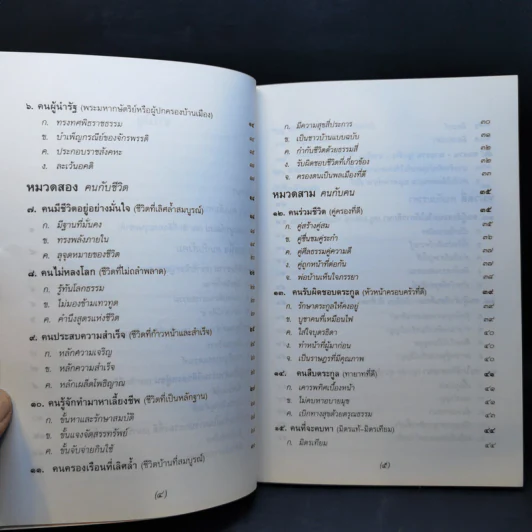 ๖. คนผู้นำรัฐ (พระมหากษัตริย์หรือผู้ปกครองบ้านเมือง)
ก. ทรงทศพิธราชธรรม
ข. บำเพ็ญกรณีย์ของจักรพรรดิ
ค. ประกอบราชสังคหะ
ง. ละเว้นอคติ
หมวดสอง คนกับชีวิต
๗. คนมีชีวิตอยู่อย่างมั่นใจ (ชีวิตที่เลิศล้ำสมบูรณ์)
ก. มีฐานที่มั่นคง
ข. ทรงพลังภายใน
ค. ลุจุดหมายของชีวิต
๘. คนไม่หลงโลก (ชีวิตที่ไม่ถลำพลาด)
ก. รู้ทันโลกธรรม
ข. ไม่มองข้ามเทวทูต
ค. คำนึงสูตรแห่งชีวิต
๙. คนประสบความสำเร็จ (ชีวิตที่ก้าวหน้าและสำเร็จ)
ก. หลักความเจริญ
ข. หลักความสำเร็จ
ค. หลักเผล็ดโพธิญาณ
๑๐. คนรู้จักทำมาหาเลี้ยงชีพ (ชีวิตที่เป็นหลักฐาน)
ก. ขั้นหาและรักษาสมบัติ
ข. ขั้นแจงจัดสรรทรัพย์
ค. ขั้นจับจ่ายกินใช้
๑๑. คนครองเรือนที่เลิศล้ำ (ชีวิตบ้านที่สมบูรณ์)
(๔)
ก. มีความสุขสี่ประการ ๓๐
ข. เป็นชาวบ้านแบบฉบับ ๓๑
ค. กำกับชีวิตด้วยธรรมสี่ ๓๒
ง. รับผิดชอบชีวิตที่เกี่ยวข้อง ๓๒
จ. ครองตนเป็นพลเมืองที่ดี
หมวดสาม คนกับคน ๓๕
๑๒. คนร่วมชีวิต (คู่ครองที่ดี) ๓๕
ก. คู่สร้างคู่สม
ข. คู่ชื่นชมคู่ระกำ
ค. คู่ศีลธรรมคู่ความดี
ง. คู่ถูกหน้าที่ต่อกัน
จ. พ่อบ้านเห็นใจภรรยา
๑๓. คนรับผิดชอบตระกูล (หัวหน้าครอบครัวที่ดี) ๓๙
ก. รักษาตระกูลให้คงอยู่ ๓๙
ข. บูชาคนที่เหมือนไฟ ๓๙
ค. ใส่ใจบุตรธิดา ๔๐
ง. ทำหน้าที่ผู้มาก่อน ๔๐
จ. เป็นราษฎรที่มีคุณภาพ
๑๔. คนสืบตระกูล (ทายาทที่ดี) ๔๑
ก. เคารพทิศเบื้องหน้า
ข. ไม่คบหาอบายมุข
ค. เบิกทางสุขด้วยดรุณธรรม
๑๕. คนที่จะคบหา (มิตรแท้-มิตรเทียม) ๔๔
ก. มิตรเทียม ๔๔
(๕)